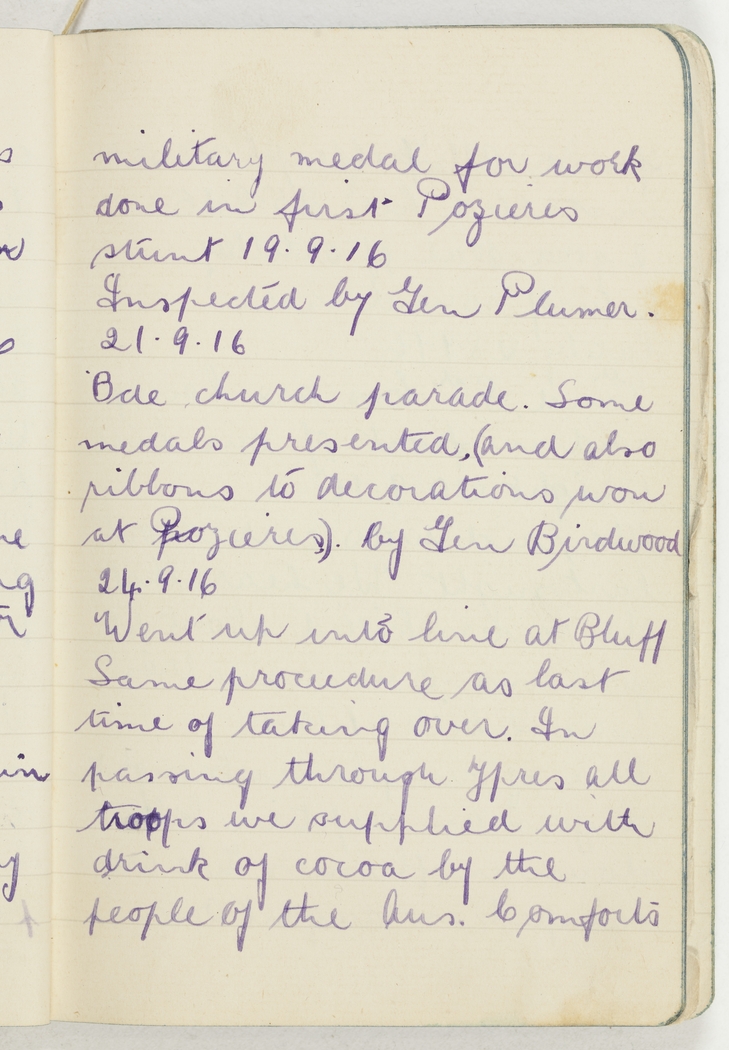 military medal for work
done in first Pozieres
stunt 19.9.16
Inspected by Gen Plumer.
21.9.16
Bde church parade. Some
medals presented, (and also
ribbons to decorations won
at Pozieres). by Gen Birdwood
24.9.16
Went up into line at Bluff
Same procedure as last
time of taking over. In
passing through Ypres all
troops we supplied with
drink of cocoa by the
people of the Aus. Comforts